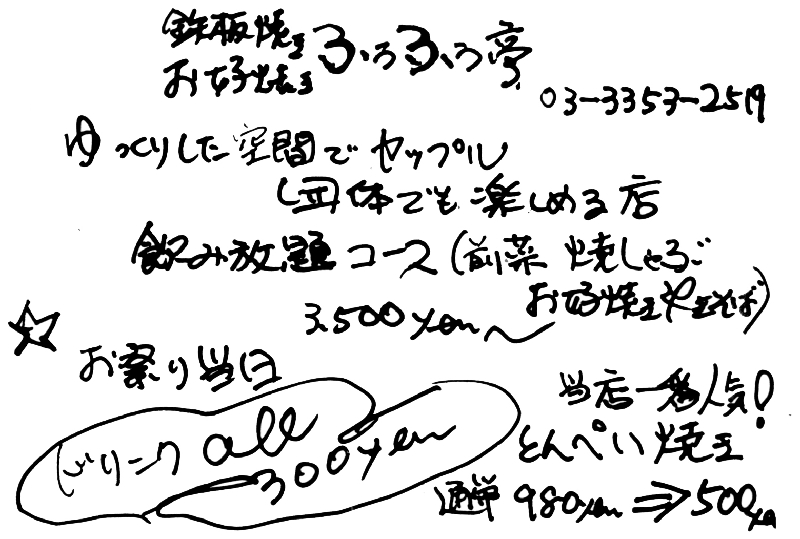 鉄板焼き
お好焼き
ろ.ろろ.ろ亭
03-3353-2519
ゆっくりした空間でカップル
団体でも楽しめる店
飲み放題コース(前菜 焼しゃぶ
お好焼き やきそば)
3,500yen〜
☆
お祭り当日
ドリンク all
300yen
当店一番人気!
とんぺい焼き
通常 980yen ⇒ 500yen